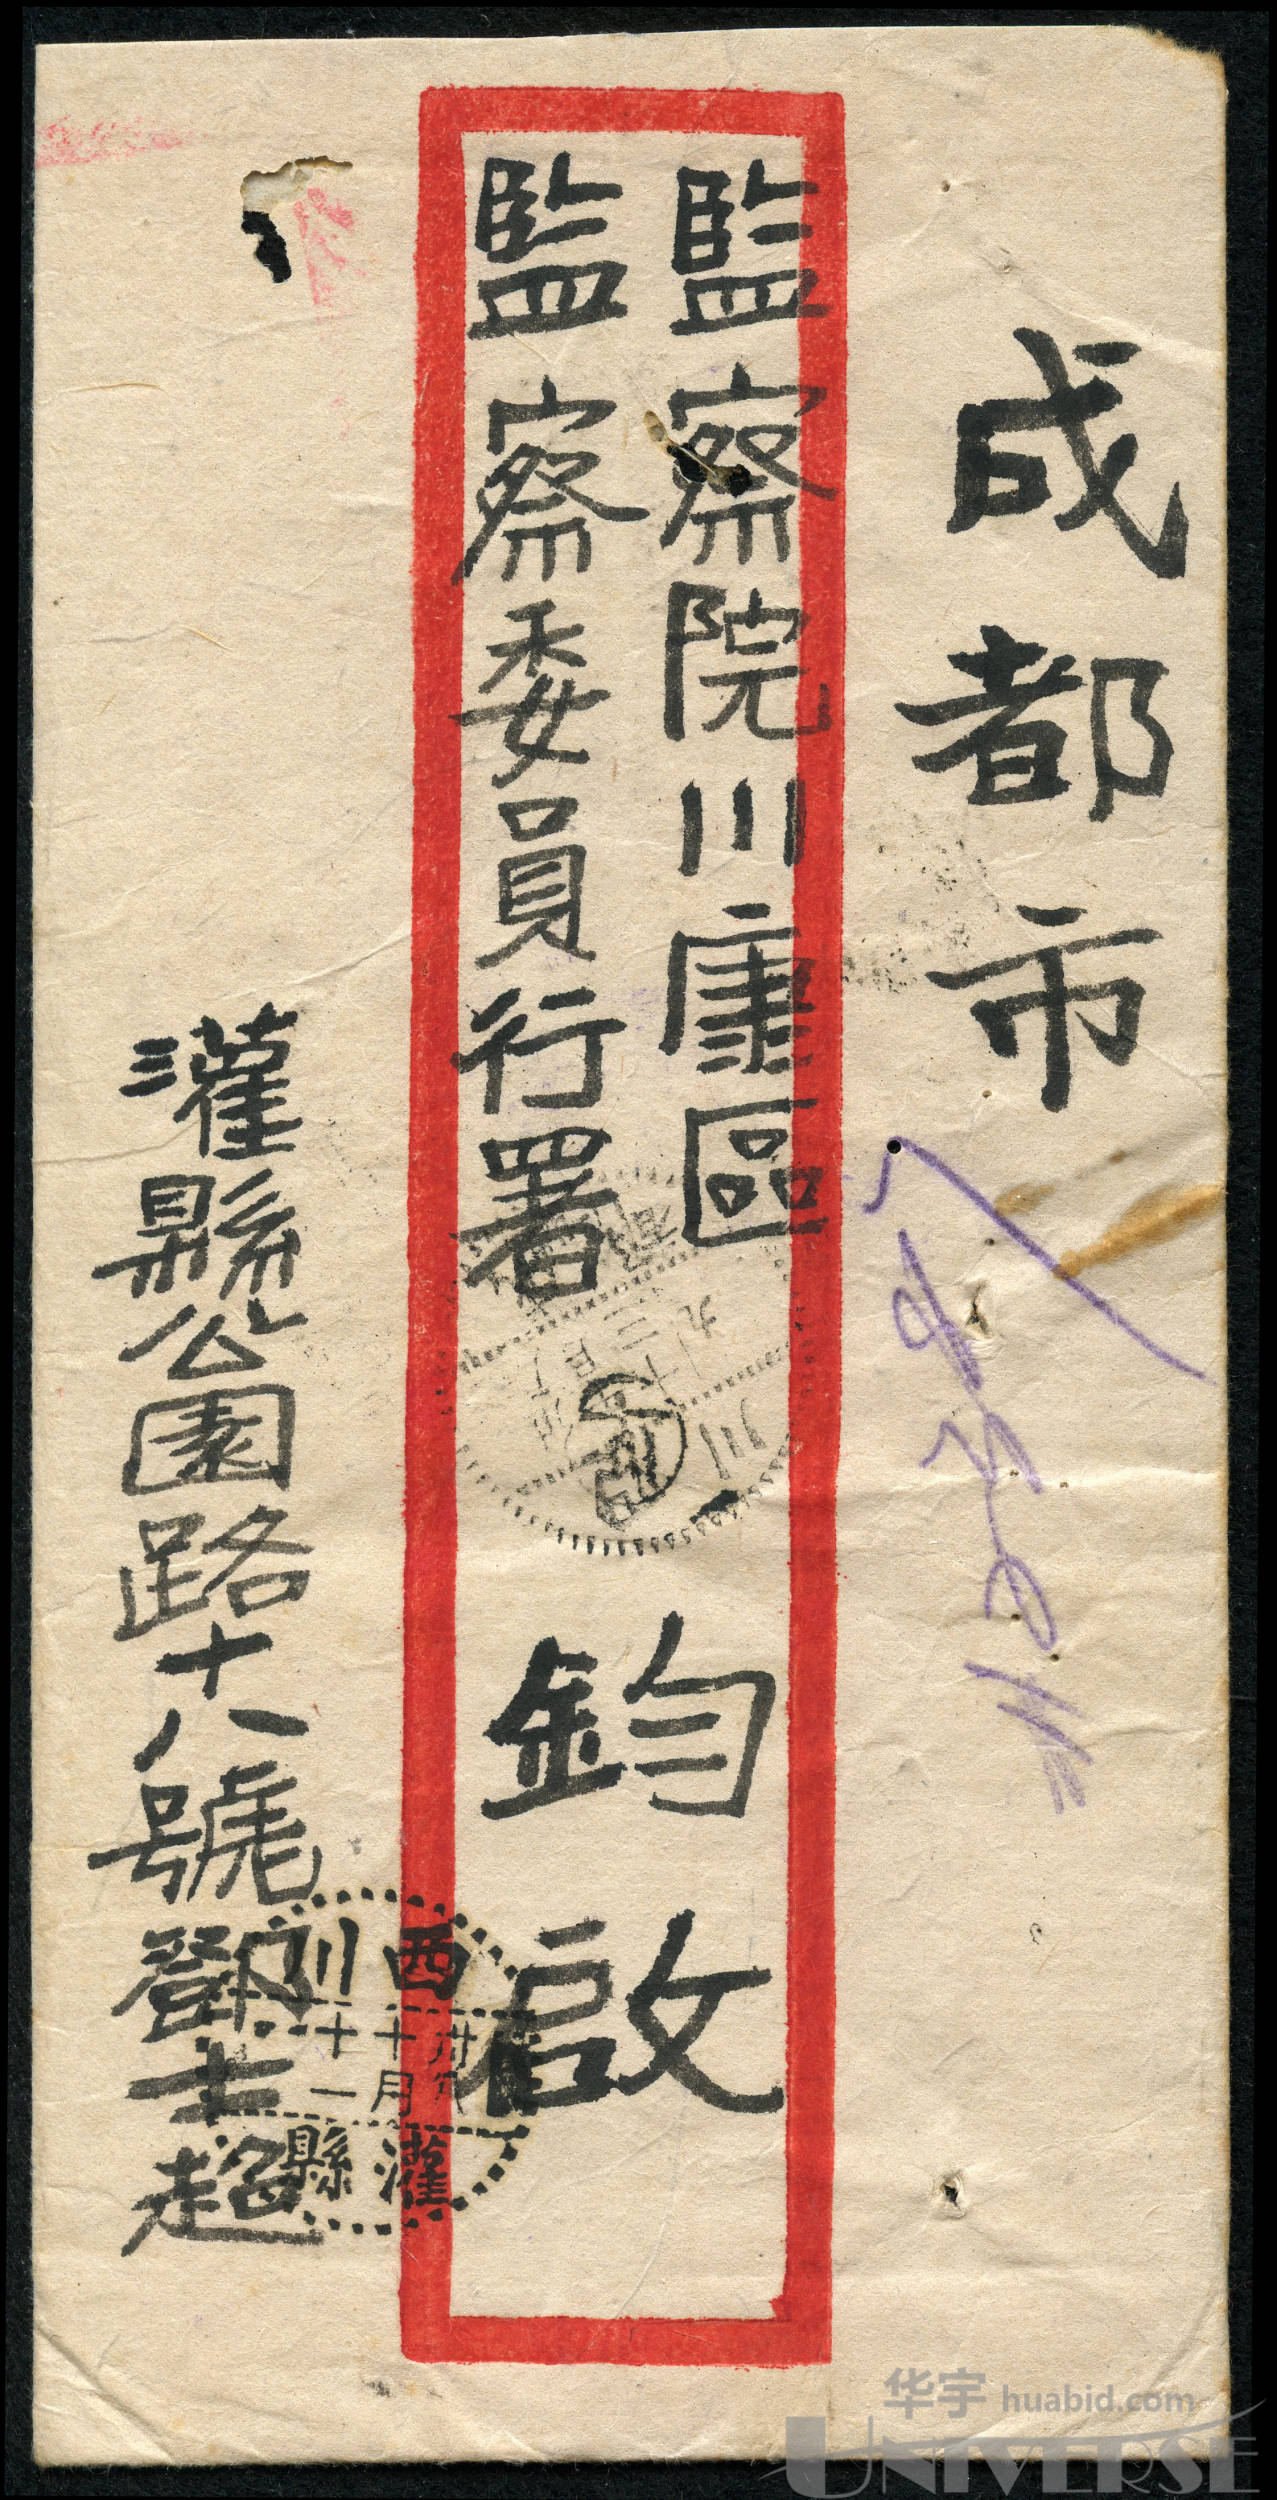 成都市
監察院川康區
監察委員行署
鈞啟
灌縣公園路十八號鄧士超
西川
卅八
十月
十一
灌縣
華宇 huabid.com
UNIVERSE